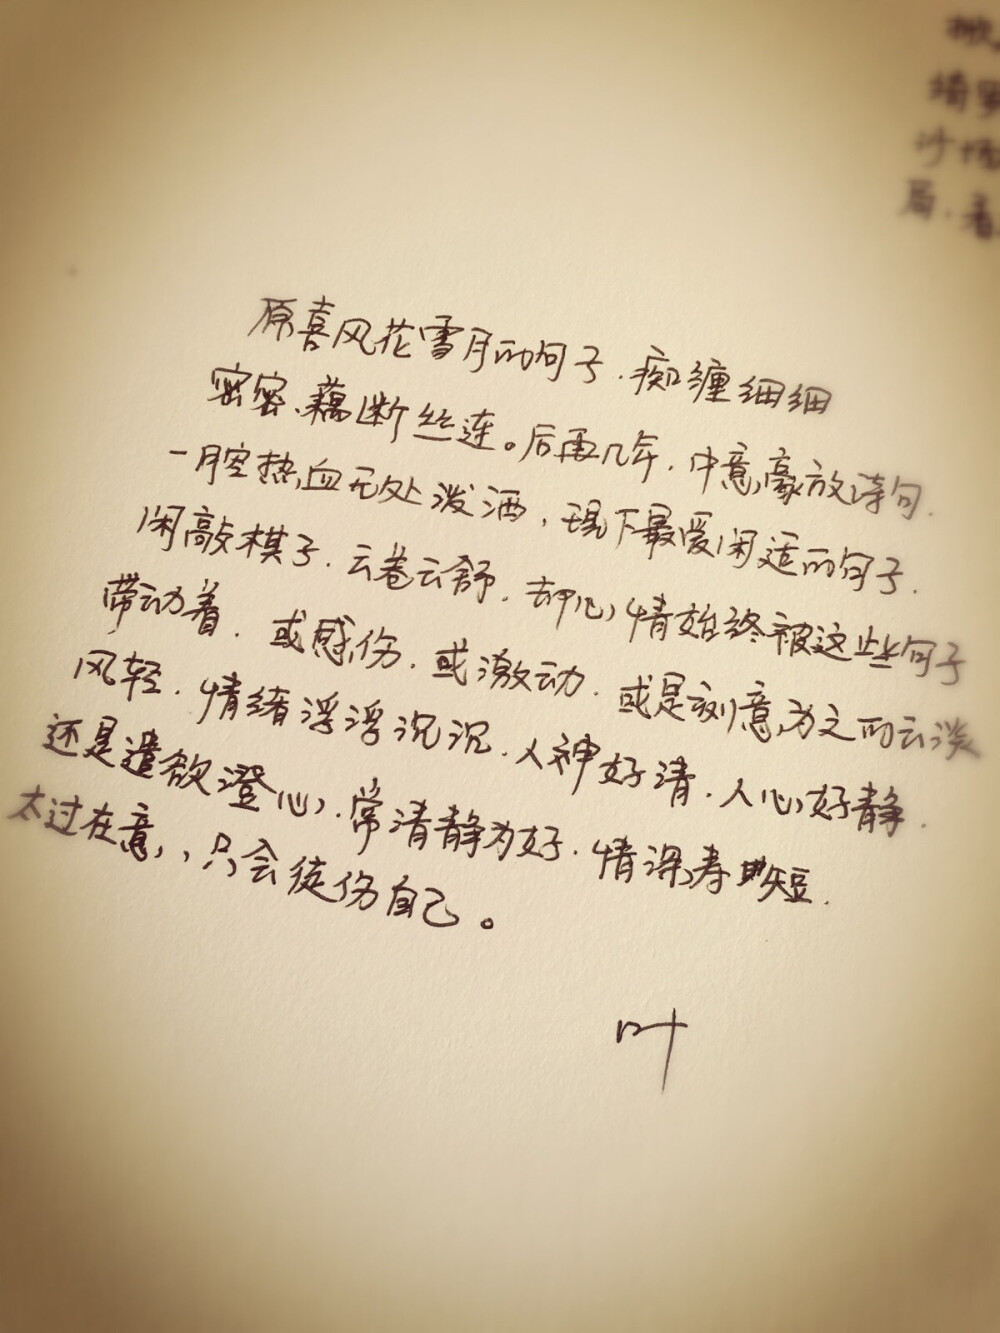 原喜风花雪月的句子.痴缠细细
密密、藕断丝连。后再几年.中意豪放诗句.
一腔热血无处泼洒,现下最爱闲适的句子.
闲敲棋子.云卷云舒.却心情始终被这些句子
带动着.或感伤.或激动.或是刻意为之的云淡
风轻.情绪浮浮沉沉.人神好清.人心好静.
还是遣欲澄心.常清静为好.情深寿短.
太过在意,,只会徒伤自己。
叶
局.看